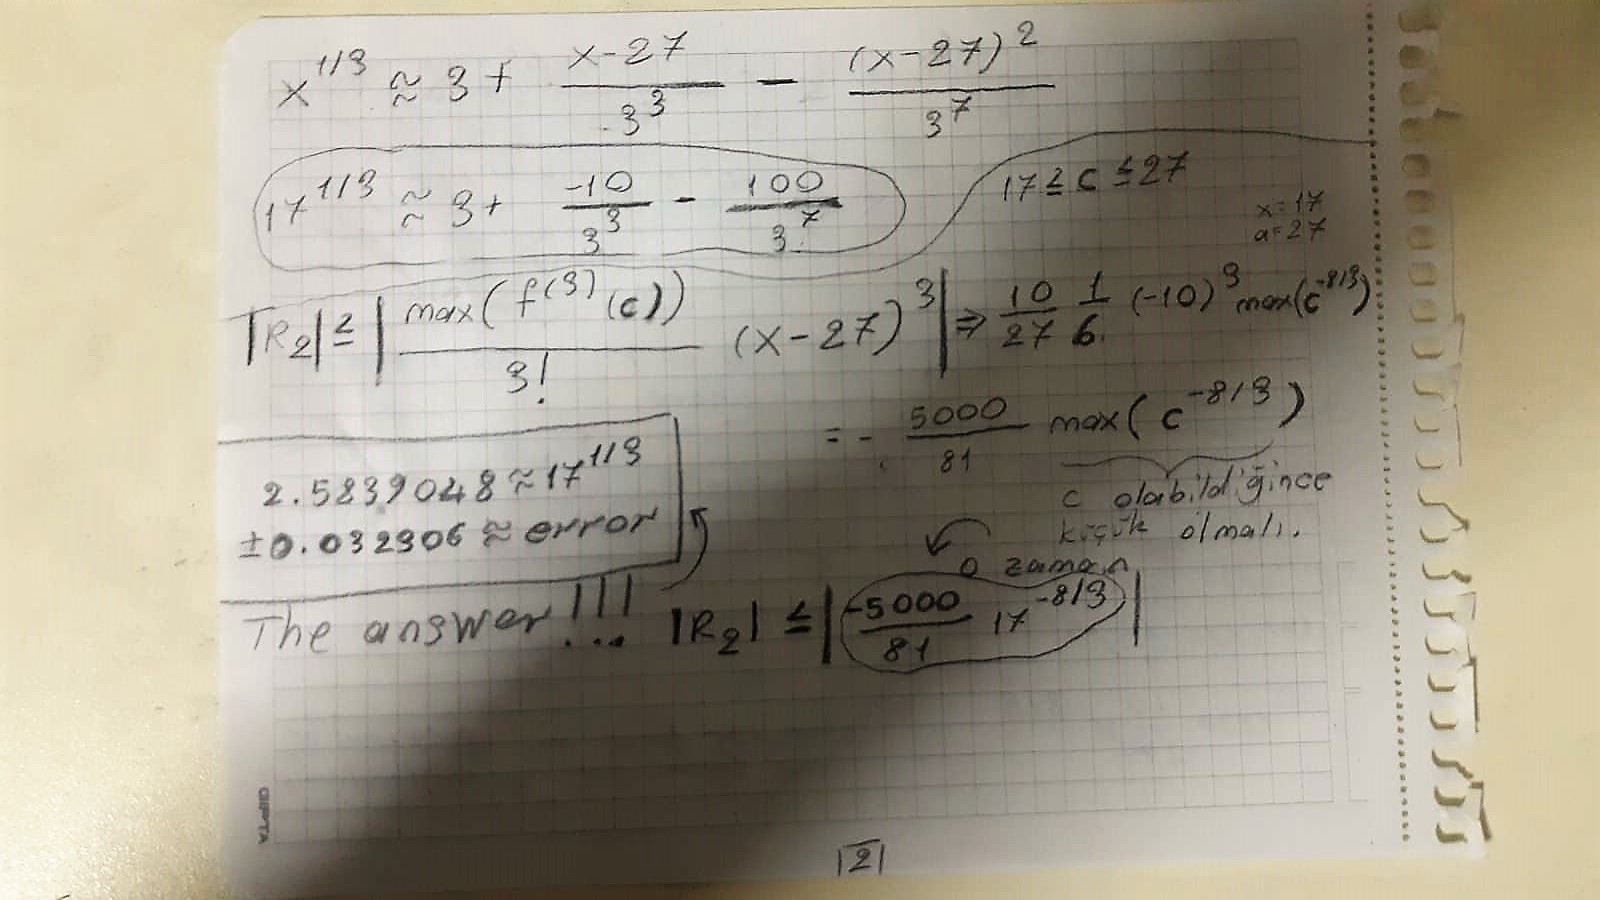 x^1/3 ≈ 3 + (x-27)/3^3 - (x-27)^2/3^7
17^1/3 ≈ 3 + -10/3^3 - 100/3^7
17 ≤ c ≤ 27
x=17
a=27
|R_2| ≤ |max(f^(3)(c))/3! (x-27)^3| ⇒ 10/27 1/6 (-10)^3 max(c^-8/3)
= - 5000/81 max(c^-8/3)
c olabildiğince
küçük olmalı.
o zaman
2.5839048 ≈ 17^1/3
±0.032306 ≈ error
The answer!!!... |R_2| ≤ |-5000/81 17^-8/3|
GIPTA
|2|